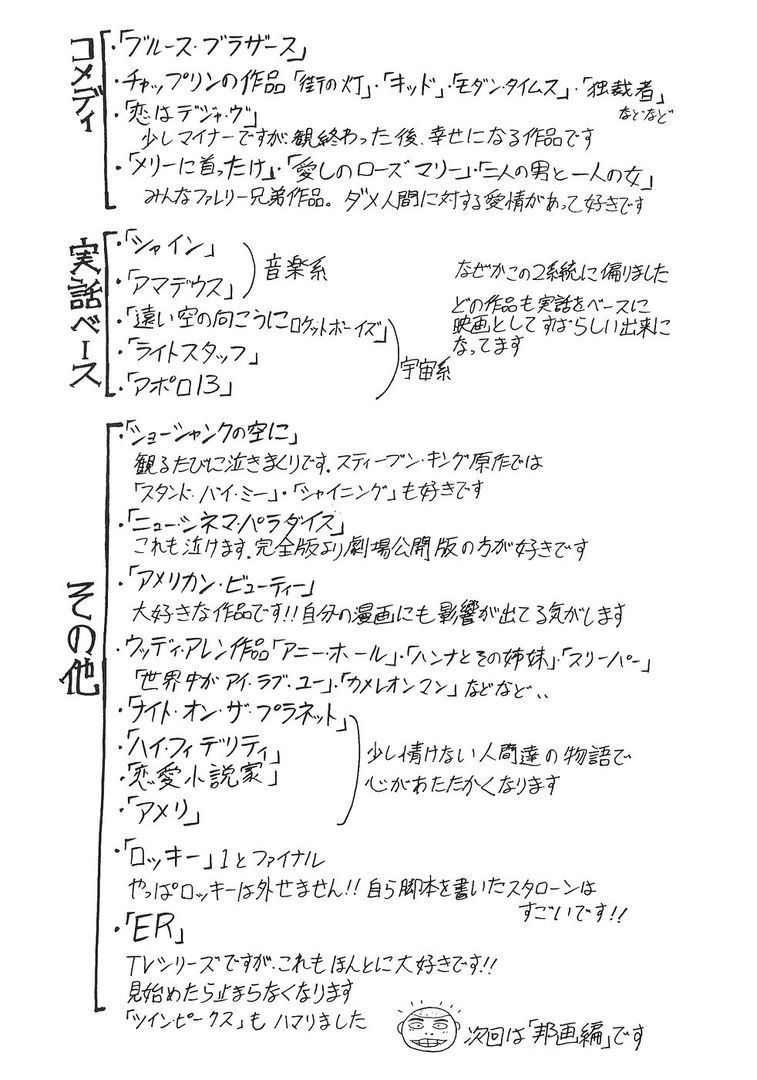 コメディ
・「ブルース・ブラザース」
・チャップリンの作品「街の灯」・「キッド」・「モダン・タイムス」・「独裁者」
などなど
・「恋はデジャ・ヴ」
少しマイナーですが、観終わった後、幸せになる作品です
・「メリーに首ったけ」・「愛しのローズマリー」・「二人の男と一人の女」
みんなファレリー兄弟作品。ダメ人間に対する愛情があって好きです
実話ベース
・「シャイン」
・「アマデウス」
音楽系
・「遠い空の向こうにロケットボーイズ」
・「ライトスタッフ」
・「アポロ13」
宇宙系
なぜかこの2系統に偏りました
どの作品も実話をベースに
映画としてすばらしい出来に
なってます
その他
・「ショーシャンクの空に」
観るたびに泣きまくりです。スティーブン・キング原作では
「スタンド・バイ・ミー」・「シャイニング」も好きです
・「ニュー・シネマ・パラダイス」
これも泣けます。完全版より劇場公開版の方が好きです
・「アメリカン・ビューティー」
大好きな作品です!!自分の漫画にも影響が出てる気がします
・ウッディ・アレン作品「アニー・ホール」・「ハンナとその姉妹」・「スリーパー」
「世界中がアイ・ラブ・ユー」・「カメレオンマン」などなど、、
・「ナイト・オン・ザ・プラネット」
・「ハイ・フィデリティ」
・「恋愛小説家」
・「アメリ」
少し情けない人間達の物語で
心があたたかくなります
・「ロッキー」1とファイナル
やっぱロッキーは外せません!!自ら脚本を書いたスタローンは
すごいです!!
・「ER」
TVシリーズですが、これもほんとに大好きです!!
見始めたら止まらなくなります
「ツインピークス」もハマりました
次回は「邦画編」です